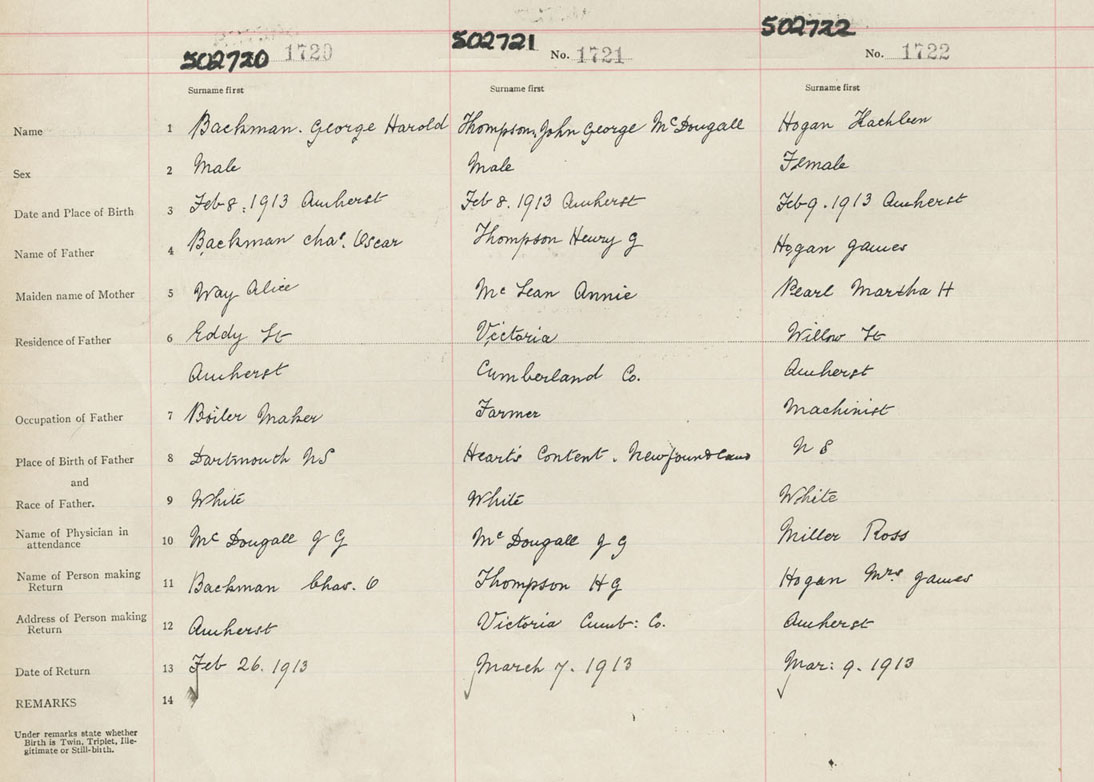 502720 1720 502721 No. 1721 502722 No. 1722
Surname first Surname first Surname first
Name 1 Backman. George Harold Thompson, John George McDougall Hogan Kathleen
Sex 2 Male Male Female
Date and Place of Birth 3 Feb 8. 1913 Amherst Feb 8. 1913 Amherst Feb 9. 1913 Amherst
Name of Father 4 Backman Chas. Oscar Thompson Henry G Hogan James
Maiden name of Mother 5 Way Alice McLean Annie Pearl Martha H
Residence of Father 6 Eddy St Victoria Willow St
Amherst Cumberland Co. Amherst
Occupation of Father 7 Boiler Maker Farmer Machinist
Place of Birth of Father 8 Dartmouth NS Heart's Content. Newfoundland N S
and
Race of Father. 9 White White White
Name of Physician in
attendance 10 McDougall J G McDougall J G Miller Ross
Name of Person making
Return 11 Backman Chas. O Thompson H G Hogan Mrs James
Address of Person making
Return 12 Amherst Victoria Cumb: Co. Amherst
Date of Return 13 Feb 26. 1913 March 7. 1913 Mar: 9. 1913
REMARKS 14
Under remarks state whether
Birth is Twin, Triplet, Ille-
gitimate or Still-birth.